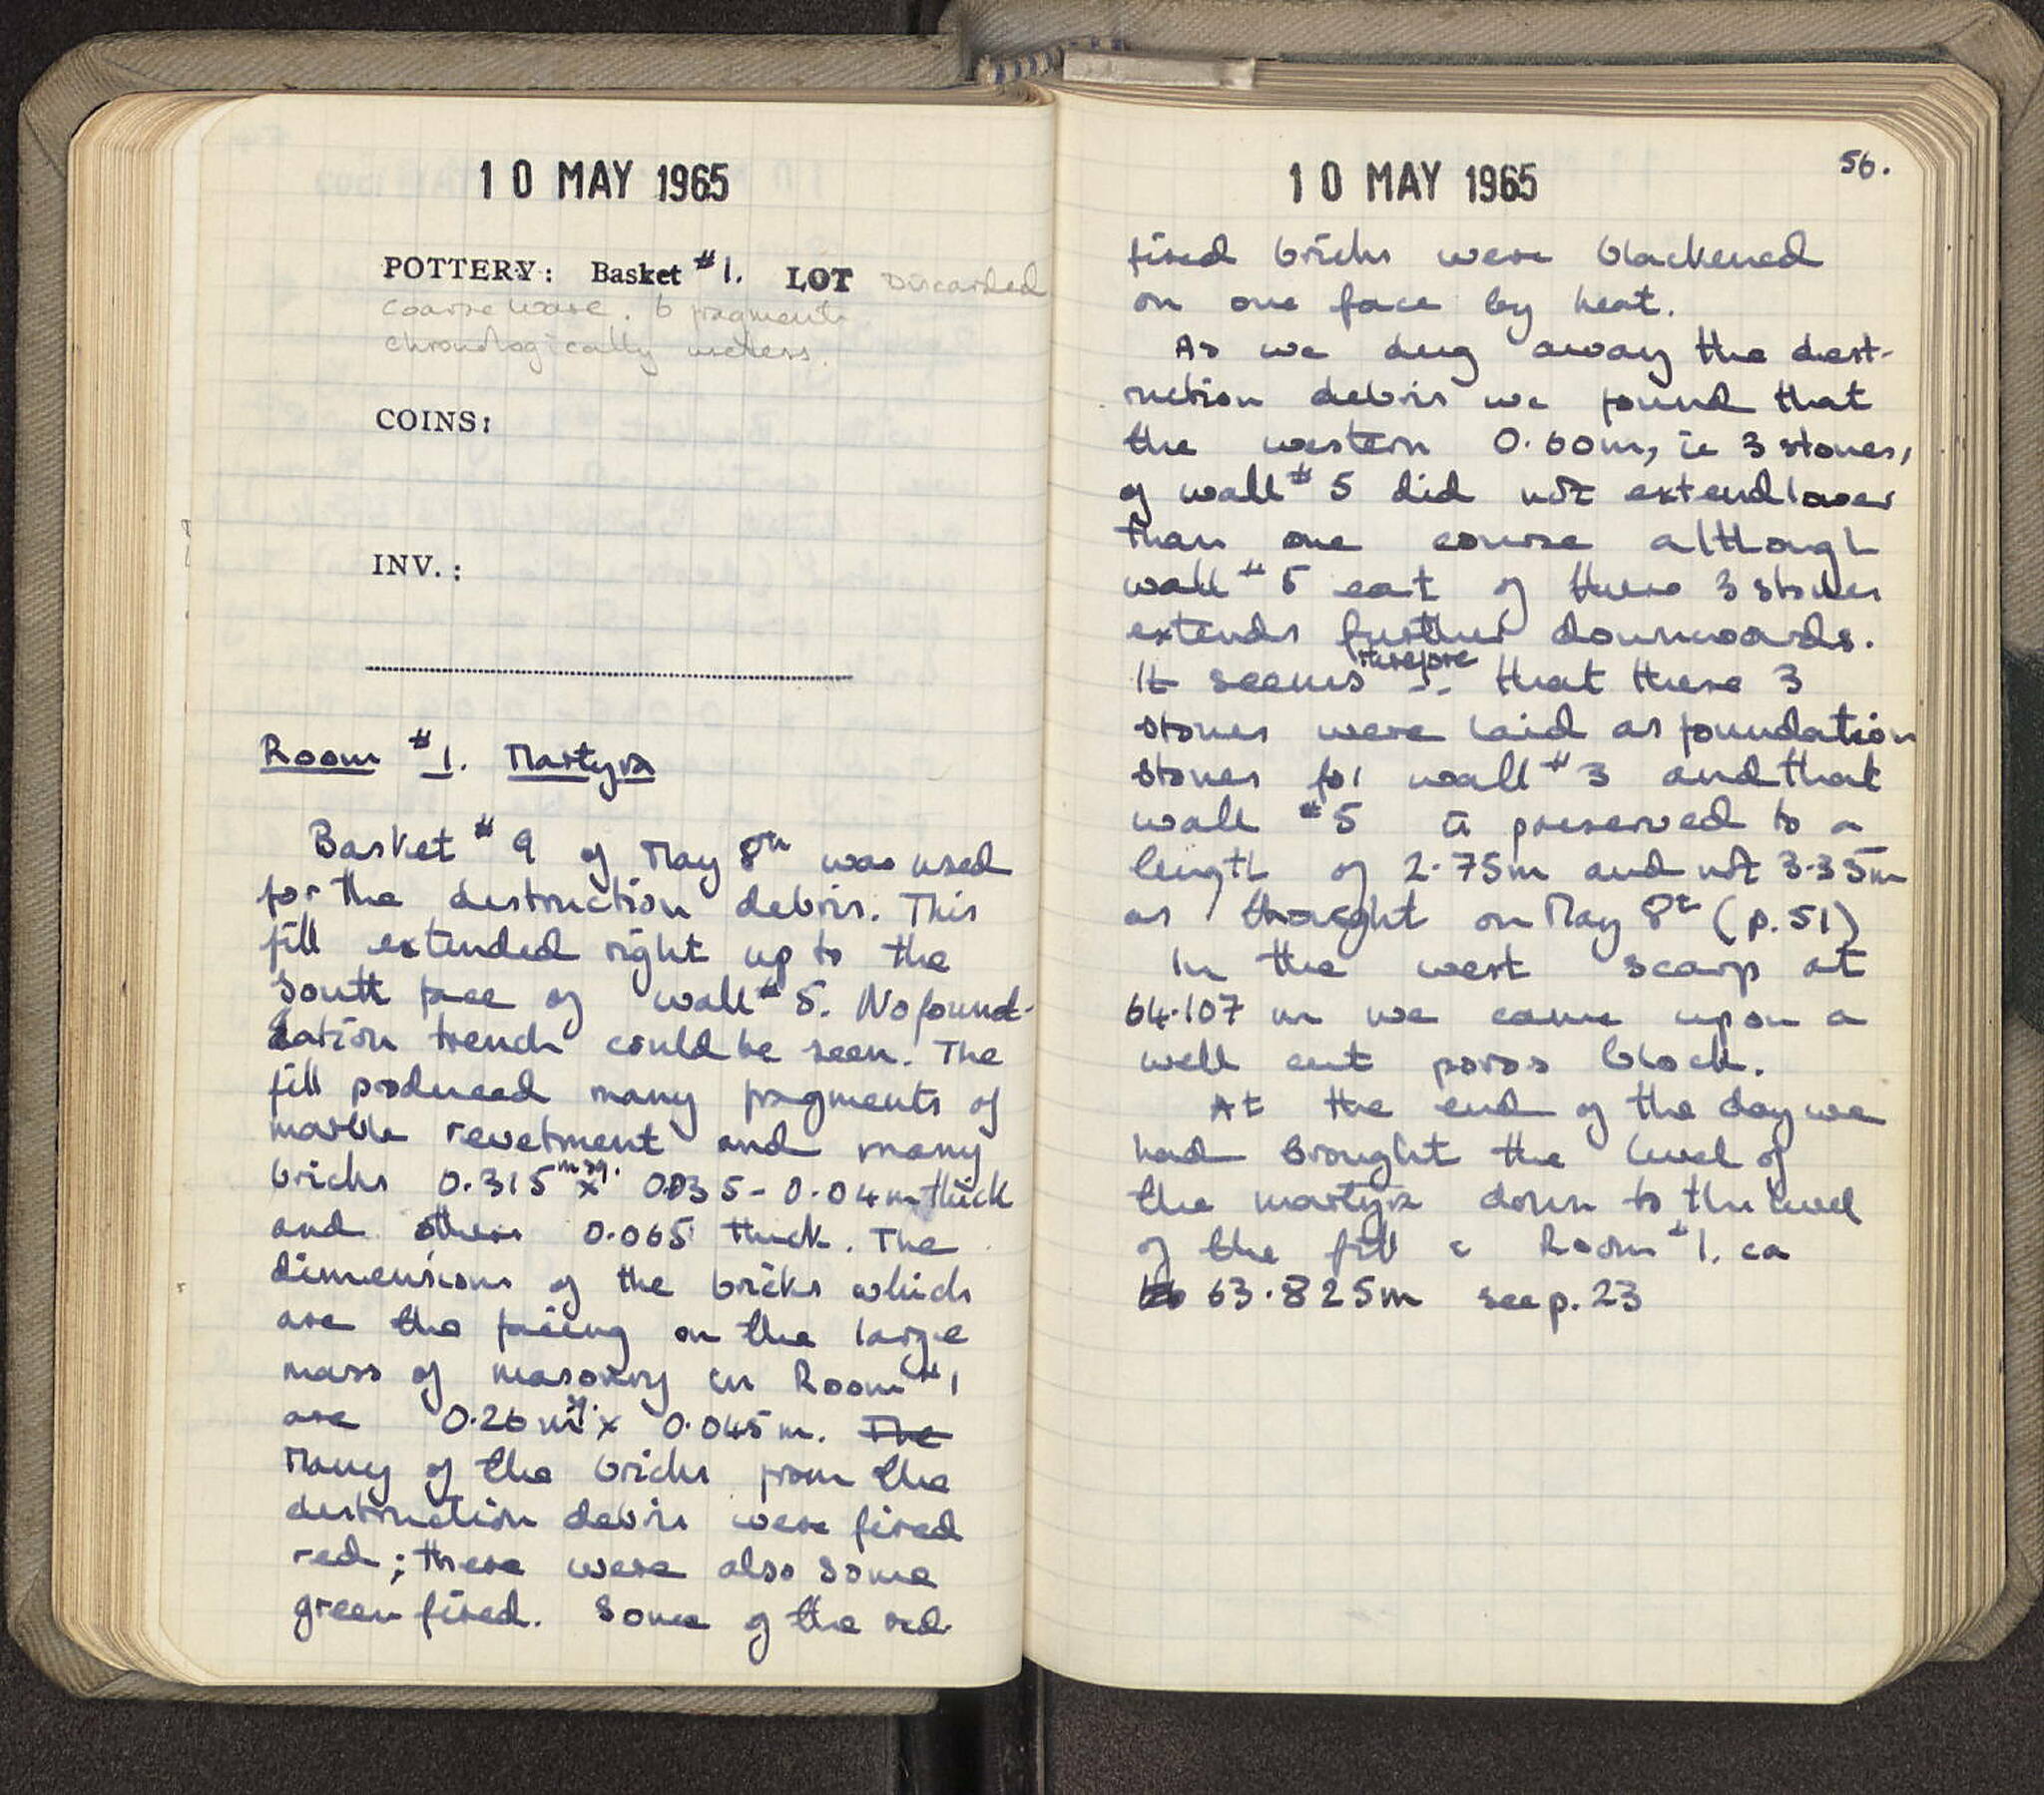 10 MAY 1965
POTTERY: Basket #1. LOT Discarded
coarse ware. 6 fragments
chronologically useless.
COINS:
INV.:
Room #1. Martyra
Basket #9 of May 8th was used
for the destruction debris. This
fill extended right up to the
South face of wall #5. No found-
ation trench could be seen. The
fill produced many fragments of
marble revetment and many
bricks 0.315 m sq. x 0.035 - 0.04 m thick
and others 0.065 thick. The
dimensions of the bricks which
are the facing on the large
mass of masonry in Room #1
are 0.26 m sq. x 0.045 m. The
Many of the bricks from the
destruction debris were fired
red; there were also some
green fired. Some of the red
10 MAY 1965
56.
fired bricks were blackened
on one face by heat.
As we dug away the dest-
ruction debris we found that
the western 0.60m, ie 3 stones,
of wall #5 did not extend lower
than one course although
wall #5 east of these 3 stones
extends further downwards.
It seems therefore that these 3
stones were laid as foundation
stones for wall #3 and that
wall #5 is preserved to a
length of 2.75m and not 3.35m
as thought on May 8th (p. 51)
In the west scarp at
64.107 m we came upon a
well cut poros block.
At the end of the day we
had brought the level of
the martyra down to the level
of the fill c Room #1. ca
63.825m see p. 23